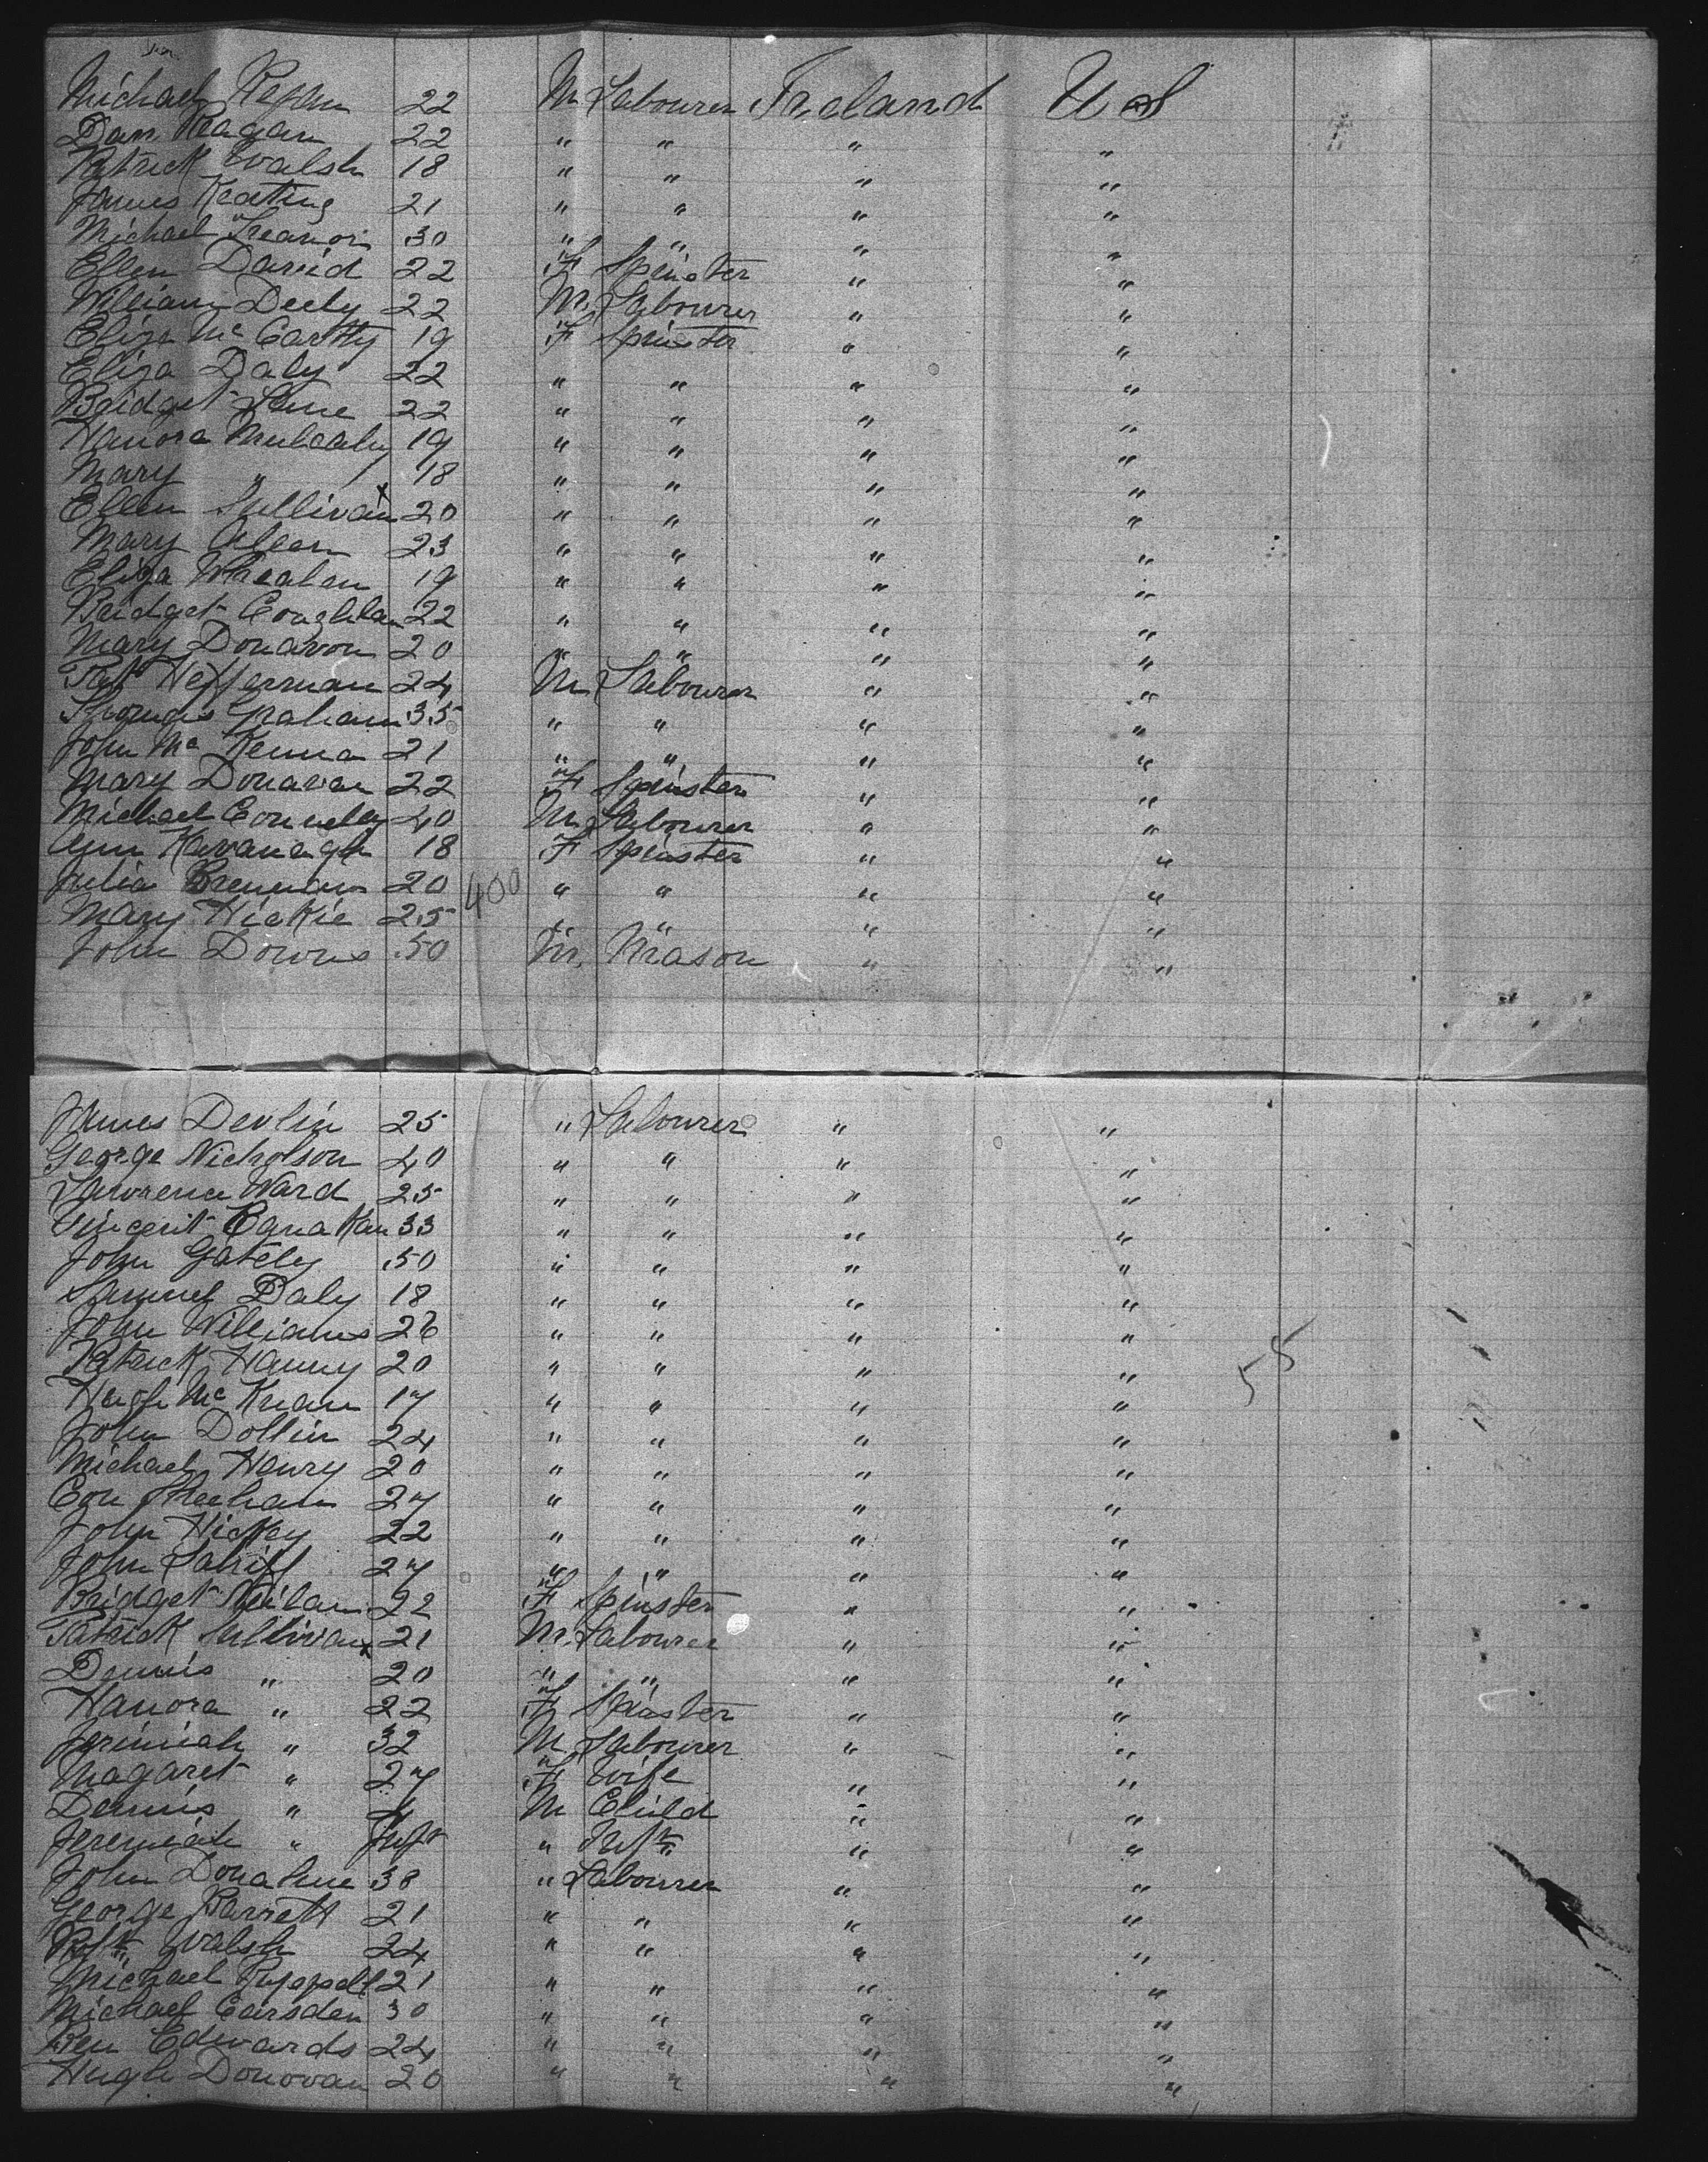 Michael Regan 22 M Labourer Ireland U S
Dan Reagan 22 " " " "
Patrick Walsh 18 " " " "
James Keating 21 " " " "
Michael Treanor 30 " " " "
Ellen David 22 F Spinster " "
William Deely 22 M Labourer " "
Eliza Mc Carthy 19 F Spinster " "
Eliza Daly 22 " " " "
Bridget Lane 22 " " " "
Hanora Mulcahy 19 " " " "
Mary " 18 " " " "
Ellen Sullivan x 20 " " " "
Mary Aleen 23 " " " "
Eliza Whealen 19 " " " "
Bridget Coughlan 22 " " " "
Mary Donavon 20 " " " "
Patk Heffernan 24 M Labourer " "
Thomas Graham 35 " " " "
John Mc Kenna 21 " " " "
Mary Donavan 22 F Spinster " "
Michael Connelly 40 M Labourer " "
Ann Kavanagh 18 F Spinster " "
Julia Brennan 20 400 " " " "
Mary Hickie 25 " " " "
John Downs 50 M Mason " "
James Devlin 25 " Labourer " "
George Nicholson 40 " " " "
Lawrence Ward 25 " " " "
Vincent 33 " " " "
John Gately 50 " " " "
Samuel Daly 18 " " " "
John Williams 26 " " " "
Patrick Hanny 20 " " " "
Hugh Mc 17 " " " "
John Dollin 24 " " " "
Michael Henry 20 " " " "
Con Sheehan 27 " " " "
John Hickey 22 " " " "
John 27 " " " "
Bridget 22 F Spinster " "
Patrick Sullivan x 21 M Labourer " "
Dennis " 20 " " " "
Hanora " 22 F Spinster " "
Jerimiah " 32 M Labourer " "
Magaret " 27 F Wife " "
Dennis " 4 M Child " "
Jeremiah " Inft " Inft " "
John Donahue 38 " Labourer " "
George Barrett 21 " " " "
Walsh 24 " " " "
Michael 21 " " " "
Michael Carsden 30 " " " "
Ben Edwards 24 " " " "
Hugh Donovan 20 " " " "
55